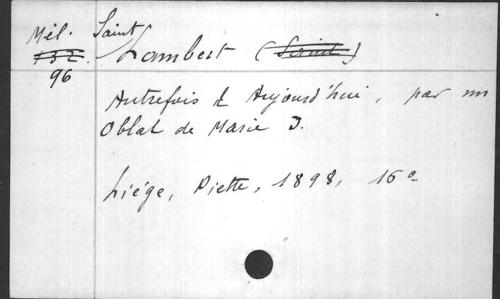 Mél. Saint
132. Lambert (Saint)
96
Autrefois & Aujourd'hui, par un
Oblat de Marie I.
Liége, Piette, 1898, 16°